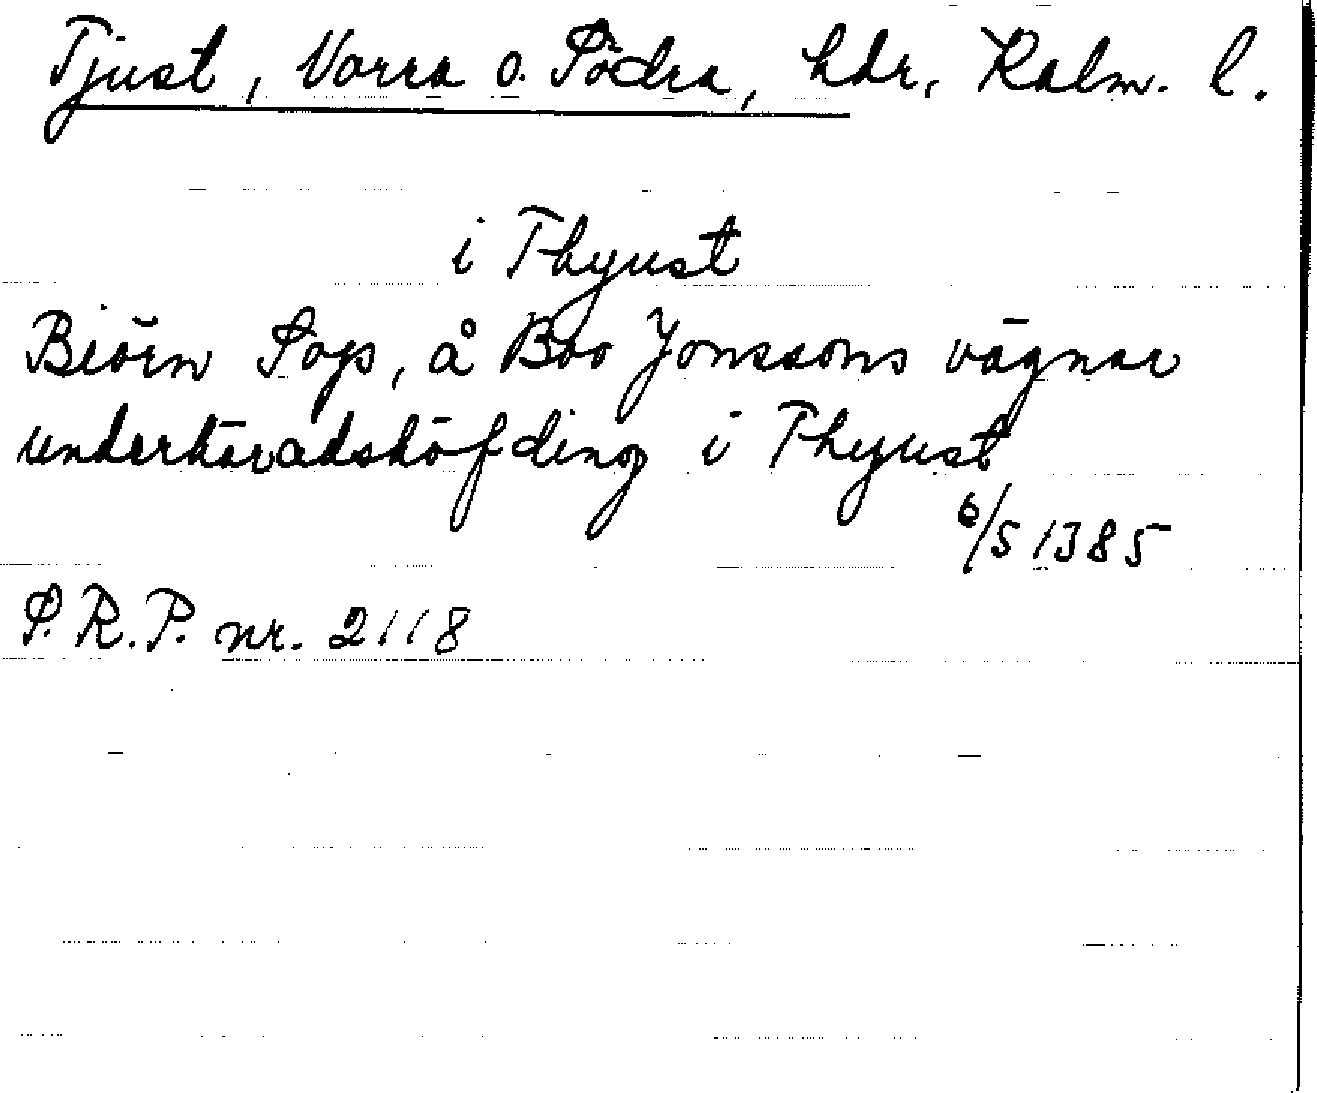 Tjust, Norra o. Södra, hdr, Kalm. l.
i Thyust
Biörn Sops, å Boo Jonssons vägnar
underhäradshöfding i Thyust
6/5 1385
S.R.P. nr. 2118